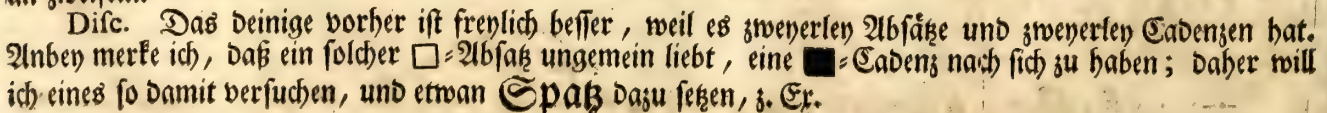 Disc. Das deinige vorher ist freylich besser, weil es zweyerley Absätze und zweyerley Cadenzen hat.
Anbey merke ich, daß ein solcher □=Absatz ungemein liebt, eine ■=Cadenz nach sich zu haben; daher will
ich eines so damit versuchen, und etwan Spaß dazu setzen, z. Ex.